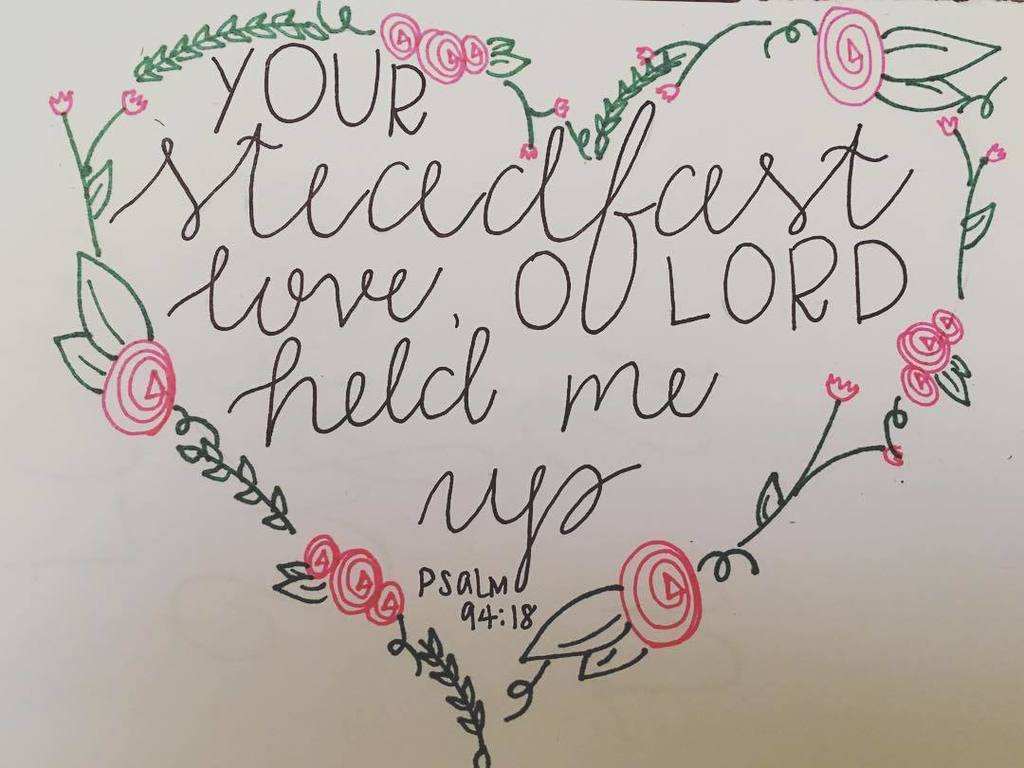 YOUR
steadfast
love, O LORD
held me
up
PSALM
94:18